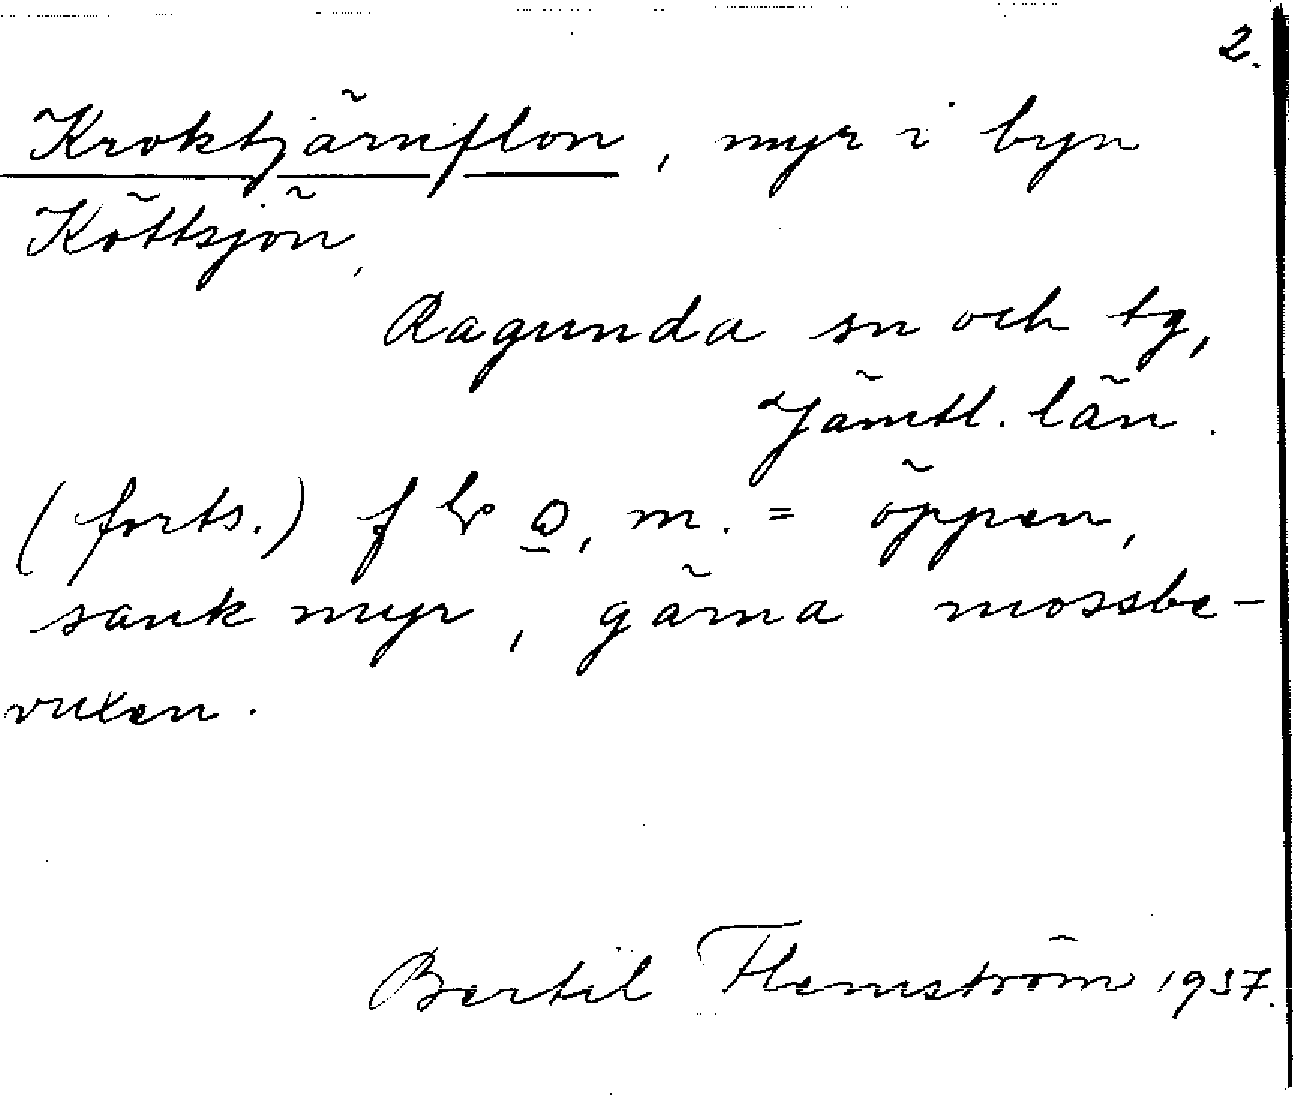 2.
Kroktjärnflon, myr i byn
Köttsjön,
Ragunda sn och tg,
Jämtl. län.
(forts.) f o̲, m. = öppen,
sank myr, gärna mossbe-
vuxen.
Bertil Flemström 1937.